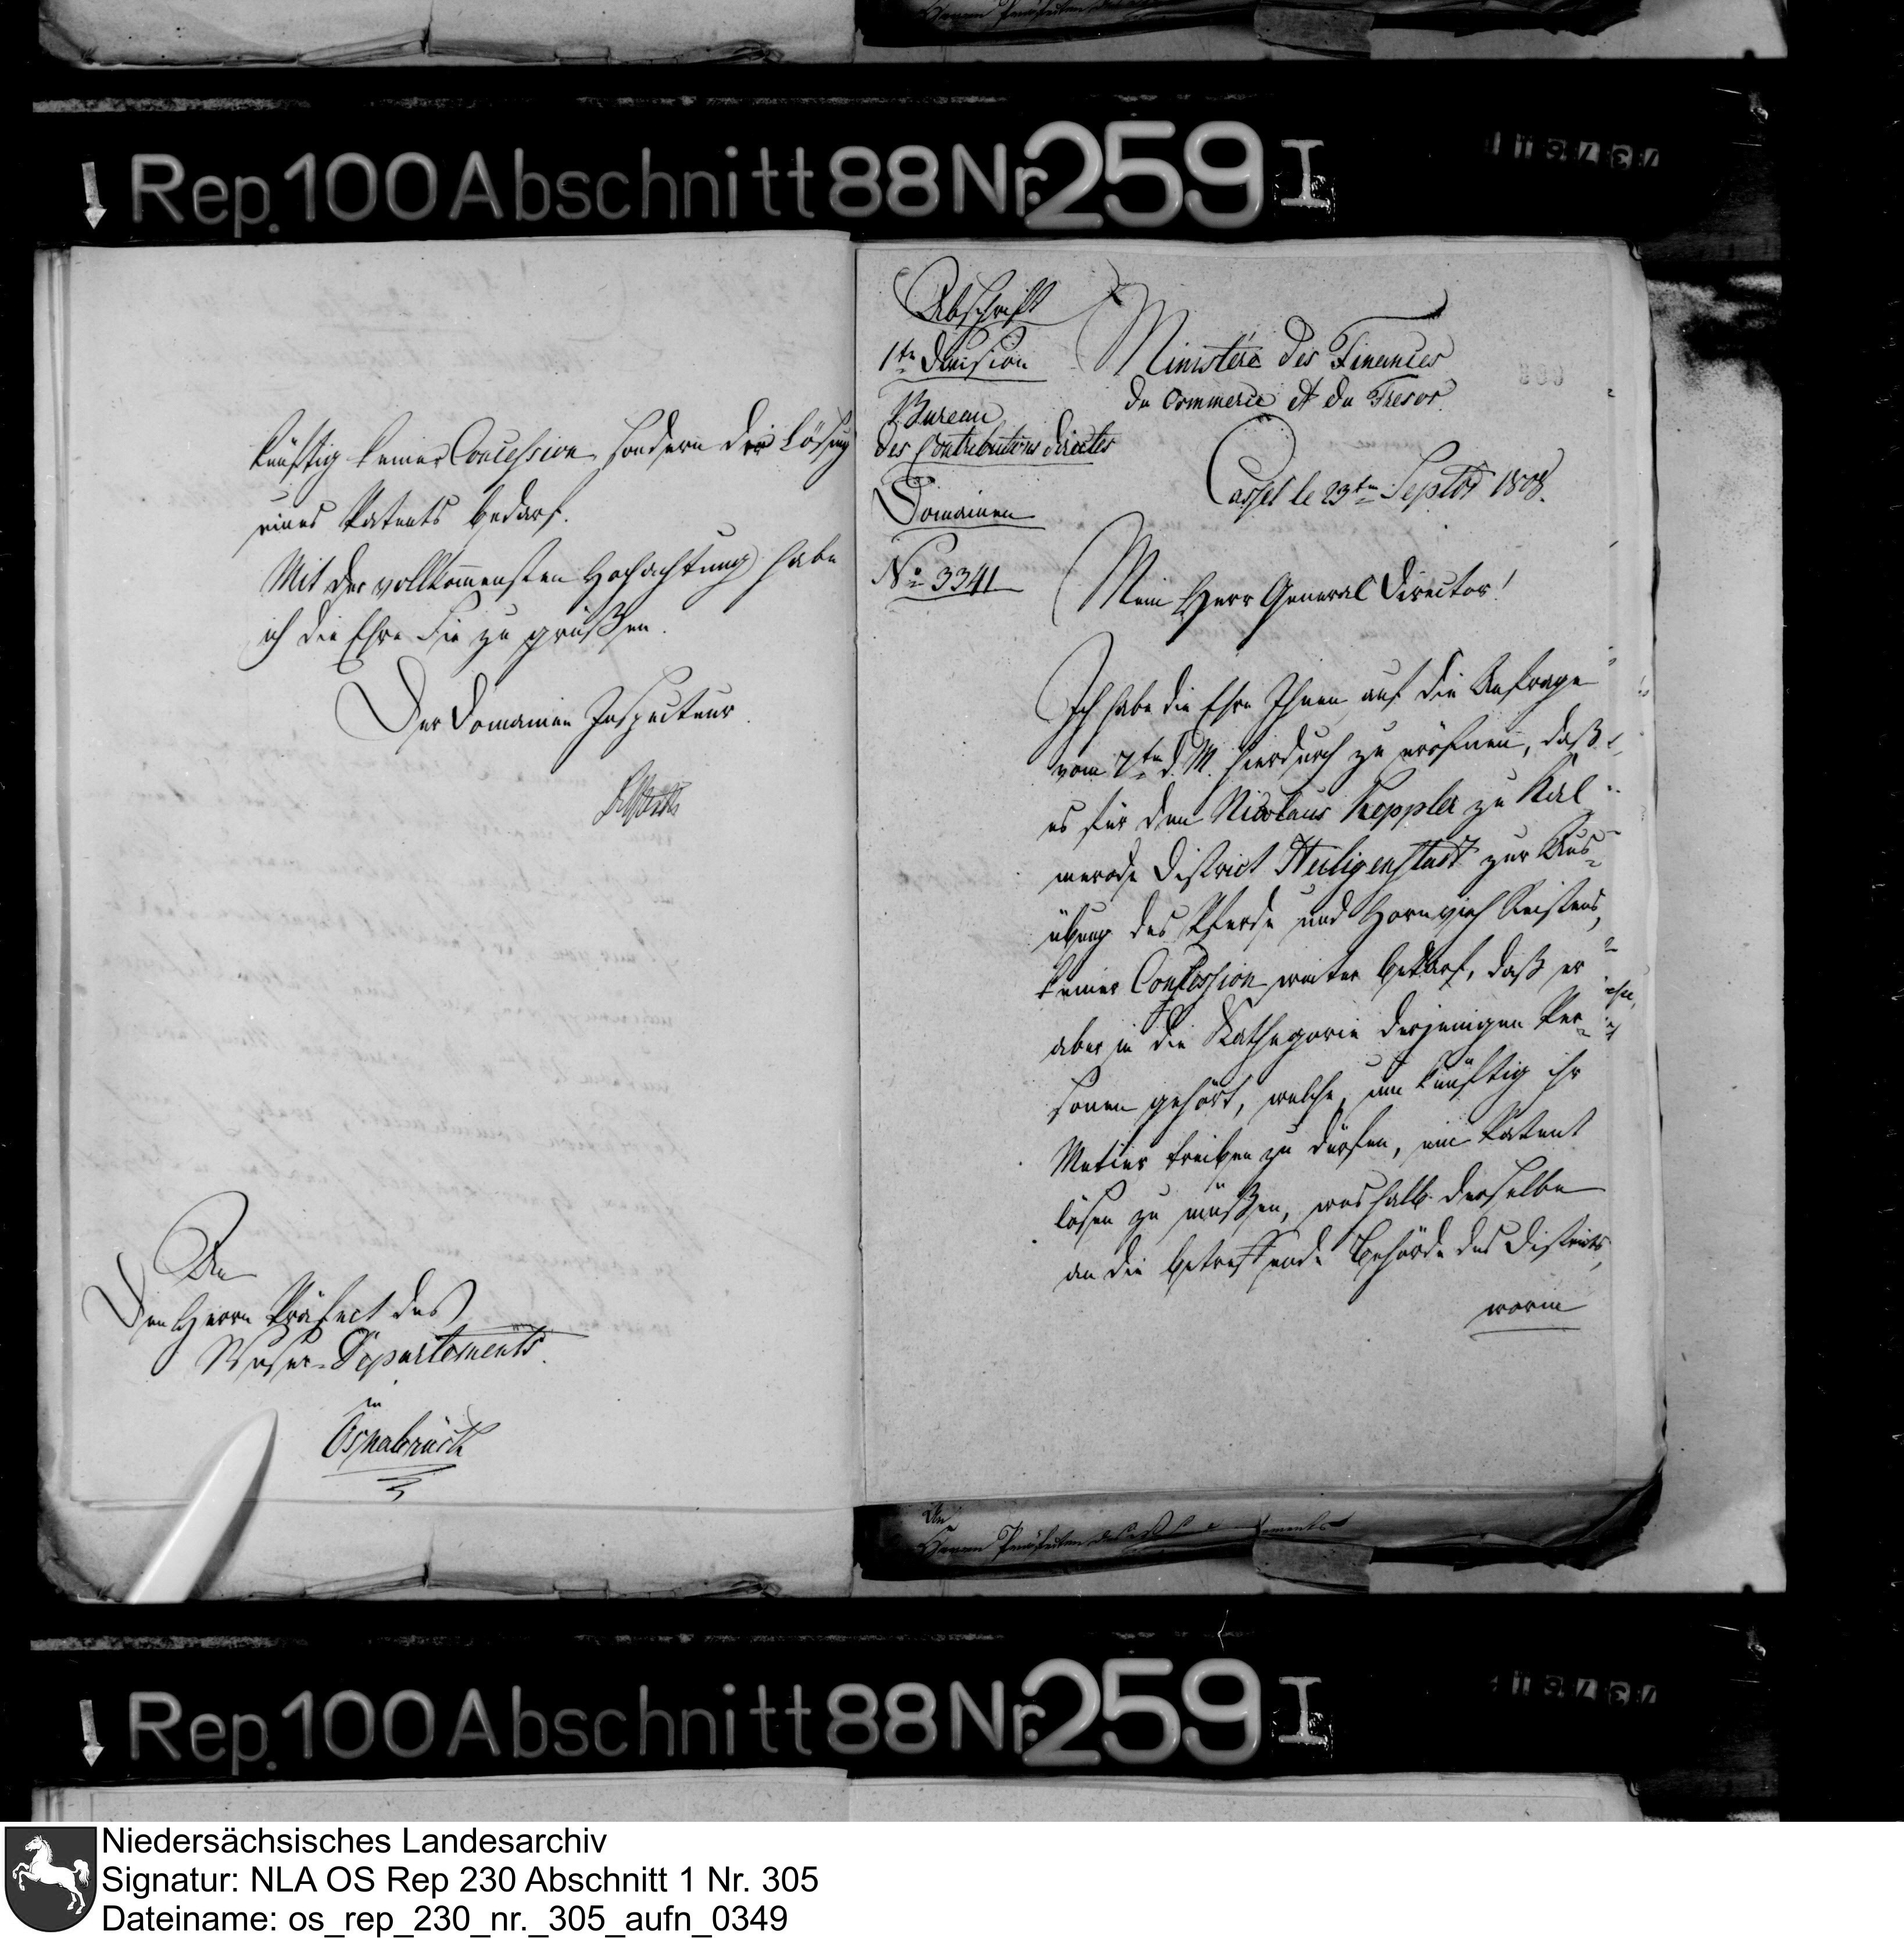 Rep. 100 Abschnitt 88 Nr. 259 I
künftig keiner Concession, sondern der Lösung
eines Patents bedarf.
Mit der vollkommensten Hochachtung habe
ich die Ehre Sie zu grüßen.
Der Domainen Inspecteur
An
Den Herrn Präfect des
Weser-Departements.
in
Osnabrück
Abschrift
1te Division
Bureau
des Contributions directes
Domainen
No 3341
Ministère des Finances
du Commerce et du Tresor.
Cassel le 23ten Septbr 1808.
Mein Herr General Director!
Ich habe die Ehre Ihnen auf die Anfrage
vom 7ten d. M. hierdurch zu eröfnen, daß
es für den Nicolaus Keppler zu Kal
merode District Heiligenstadt zur Aus-
übung des Pferde und Hornvieh
keiner Concession weiter bedarf, daß er
aber in die Kathegorie derjenigen Per-
sonen gehört, welche, um künftig ihr
Metier treiben zu dürfen, ein Patent
lösen zu müßen, weshalb derselbe
an die betreffende Behörde des Districts,
worin
An
Herrn Präfecten
Rep. 100 Abschnitt 88 Nr. 259 I
Niedersächsisches Landesarchiv
Signatur: NLA OS Rep 230 Abschnitt 1 Nr. 305
Dateiname: os_rep_230_nr._305_aufn_0349